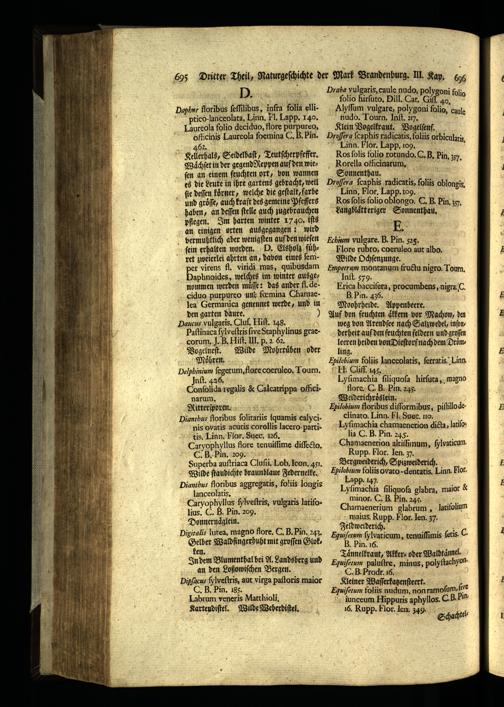 695 Dritter Theil, Naturgeschichte der Mark Brandenburg. III. Kap. 696
D.
Daphne floribus sessilibus, infra folia elli-
ptico-lanceolata, Linn. Fl. Lapp. 140.
Laureola folio deciduo, flore purpureo,
officinis Laureola foemina C. B. Pin.
462.
Kellerhals, Seidelbast, Teutscherpfeffer.
Wächset in der gegend Reppen auf den wie-
sen an einem feuchten ort, von wannen
es die leute in ihre gartens gebracht, weil
sie dessen körner, welche die gestalt, farbe
und grösse, auch kraft des gemeine Pfeffers
haben, an dessen stelle auch zugebrauchen
pflegen. Im harten winter 1740. ists
an einigen orten ausgegangen: wird
vermuthlich aber wenigsten auf den wiesen
sein erhalten worden. D. Elsholz füh-
ret zweierlei ahrten an, davon eines sem-
per virens fl. viridi mas, quibusdam
Daphnoides, welches im winter ausge-
nommen werden müsse: das ander fl. de-
ciduo purpureo und foemina Chamae-
lea Germanica genennet werde, und in
den garten daure. )
Daucus vulgaris, Clus. Hist. 148.
Pastinaca sylvestris sive Staphylinus grae-
corum. J. B. Hist. III. p. 2. 62.
Vogelnest. Wilde Mohrrüben oder
Möhren.
Delphinium segetum, flore coeruleo. Tourn.
Inst. 426.
Consolida regalis & Calcatrippa offici-
narum.
Rittersporen.
Dianthus floribus solitariis squamis calyci-
nis ovatis acutis corollis lacero-parti-
tis. Linn. Flor. Suec. 126.
Caryophyllus flore tenuissime dissecto.
C. B. Pin. 209.
Superba austriaca Clusii. Lob. Icon. 451.
Wilde staudichte braunblaue Federnelke.
Dianthus floribus aggregatis, foliis longis
lanceolatis.
Caryophyllus sylvestris, vulgaris latifo-
lius. C. B. Pin. 209.
Donnernäglein.
Digitalis lutea, magno flore. C. B. Pin. 243.
Gelber Waldfingerhuht mit grossen Glok-
ken.
In dem Blumenthal bei A. Landsberg und
an den Lossowischen Bergen.
Dipsacus sylvestris, aut virga pastoris maior
C. B. Pin. 385.
Labrum veneris Matthioli.
Kartendistel. Wilde Weberdistel.
Draba vulgaris, caule nudo, polygoni folio
folio hirsuto, Dill. Cat. Giss. 40.
Alyssum vulgare, polygoni folio, caule
nudo. Tourn. Inst. 217.
Klein Vogelkraut. Vogelsenf.
Drossera scaphis radicatis, foliis orbicularis,
Linn. Flor. Lapp, 109.
Ros solis folio rotundo. C. B. Pin. 357.
Rorella officinarum,
Sonnenthau.
Drossera scaphis radicatis, foliis oblongis.
Linn. Flor. Lapp. 109.
Ros solis folio oblongo. C. B. Pin. 357.
Langblättriger Sonnenthau.
E.
Echium vulgare. B. Pin. 525.
Flore rubro, coeruleo aut albo.
Wilde Ochsenzunge.
Empetrum montanum fructu nigro. Tourn.
Inst. 579.
Erica baccifera, procumbens, nigra C.
B Pin. 436.
Moohrheide. Appenbeere.
Auf den feuchten äkkern vor Machou, den
weg von Arendsee nach Salzwedel, inson-
derheit auf den feuchten feldern und grossen
leeren heiden von Diestorf nach dem Dröm-
ling.
Epilobium foliis lanceolatis, serratis Linn.
H. Cliff. 145.
Lysimachia siliquosa hirsuta, magno
flore. C. B. Pin. 245.
Weiderichröslein.
Epilobium floribus difformibus, pistillo de-
clinato. Linn. Fl. Suec. 110.
Lysimachia chamaenerion dicta, latifo-
lia C. B. Pin. 245.
Chamaenerion altissimum, sylvaticum.
Rupp. Flor. Ien. 37.
Bergweiderich, Spizweiderich.
Epilobium foliis ovato-dentatis. Linn. Flor.
Lapp. 147.
Lysimachia siliquosa glabra, maior &
minor. C. B. Pin. 245.
Chamaenerium glabrum, latifolium
maius. Rupp. Flor. Ien. 37.
Feldweiderich.
Equisetum sylvaticum, tenuissimis setis. C.
B. Pin. 16.
Tännelkraut, Akker- oder Waldtännel.
Equisetum palustre, minus, polystachyon.
C. B. Prodr. 16.
Kleiner Wasserkazensteert.
Equisetum foliis nudum, non ramosum, sive
iunceum Hippuris aphyllos. C. B. Pin.
16. Rupp. Flor. Ien. 349.
Schachtel-